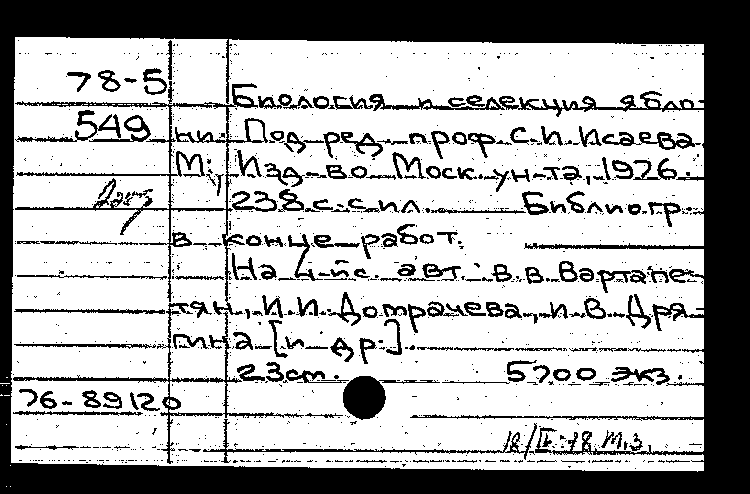 78-5
Биология и селекция ябло-
549 ни. Под ред. проф. С.И. Исаева.
М., Изд-во Моск. ун-та, 1976.
238 с. с ил. Библиогр.
в конце работ.
На 4-й с. авт.: В.В. Вартапе-
тян, И.И. Дотрачева, И.В. Дря-
гина [и др.].
23 см. 5700 экз.
76-89120
12/IV-78 М.З.